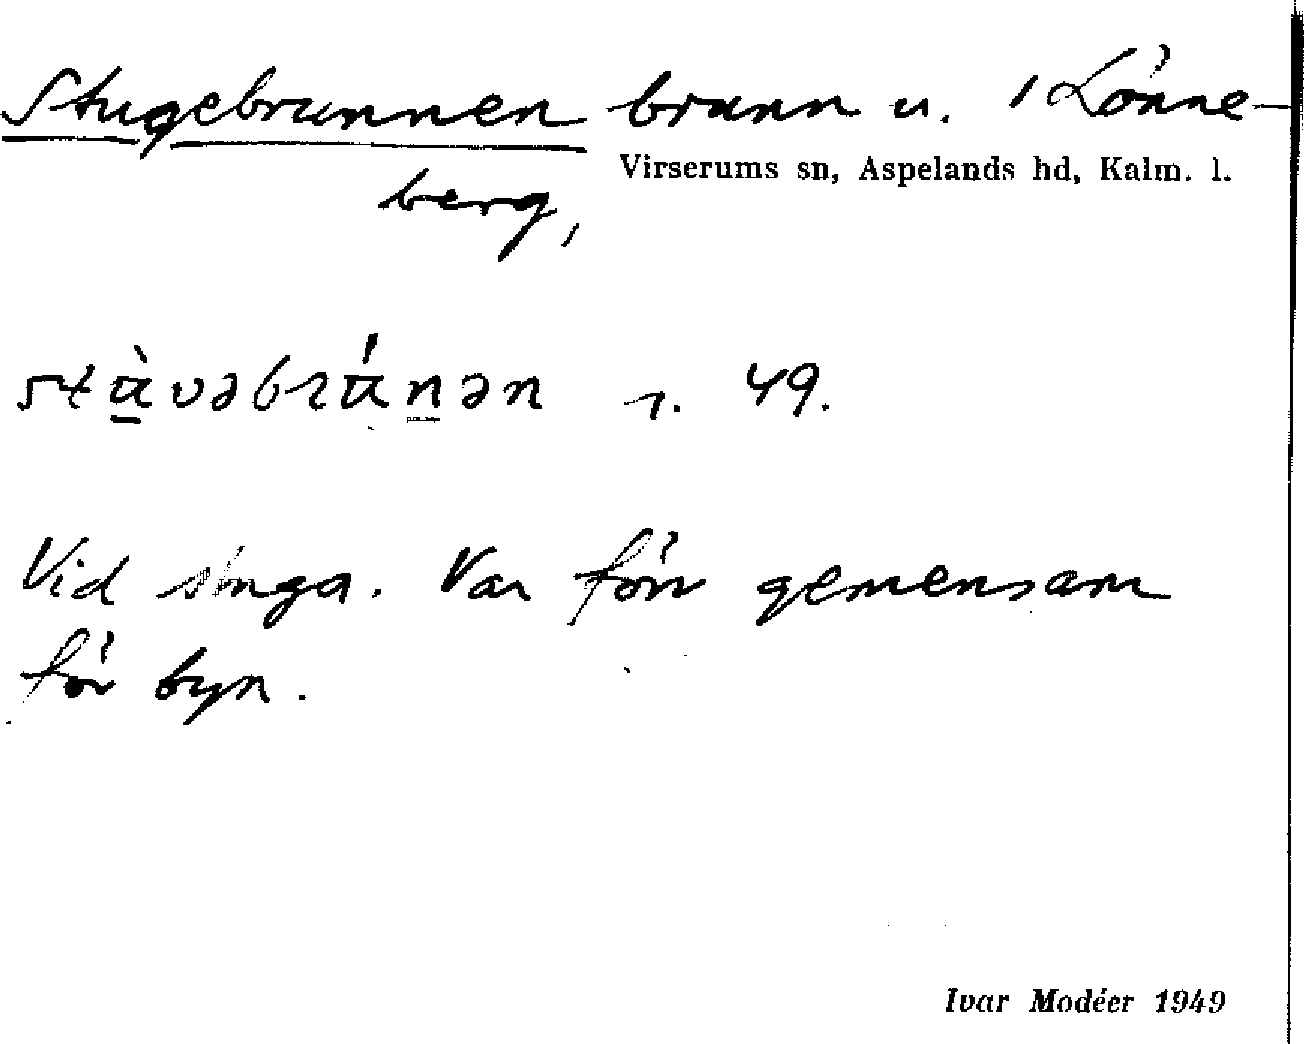 Stugebrunnen brunn u. 1 Lönne-
Virserums sn, Aspelands hd, Kalm. l.
berg,
stù̲vəbrún̲ən r. 49.
Vid stuga. Var förr gemensam
för byn.
Ivar Modéer 1949